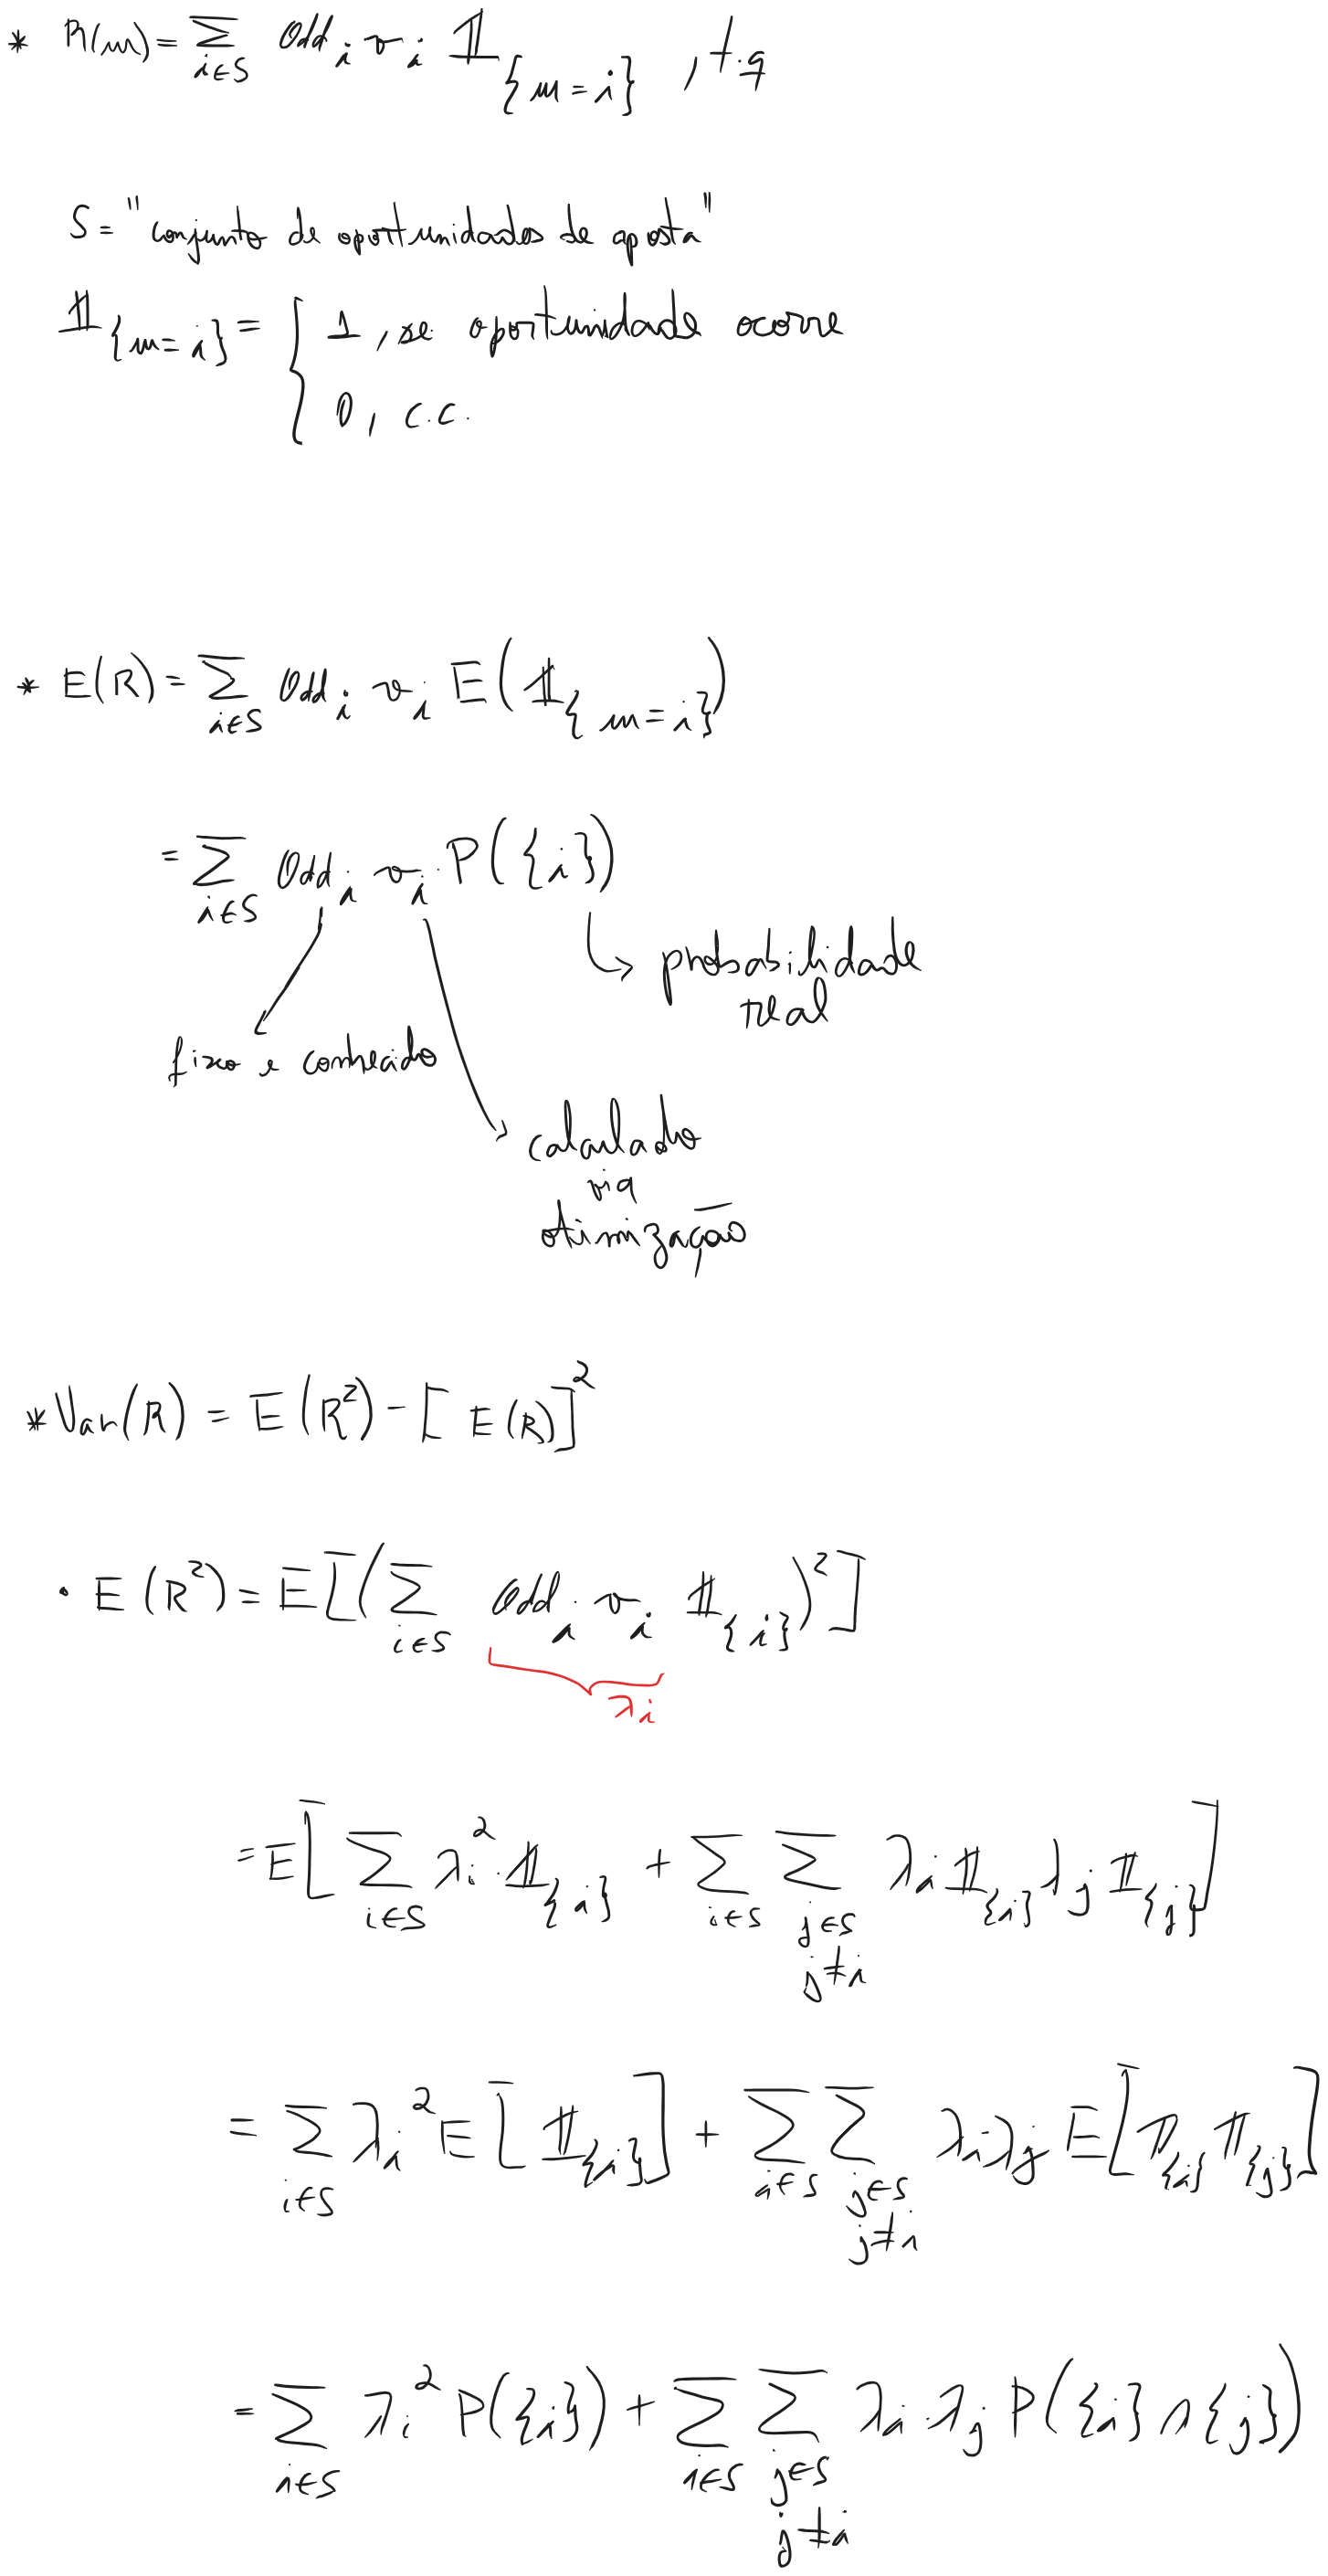 * R(m) = ∑_{i∈S} Odd_i v_i 𝟙_{m=i} , t.q
S = "conjunto de oportunidades de aposta"
𝟙_{m=i} = { 1, se oportunidade ocorre
0, c.c.
* E(R) = ∑_{i∈S} Odd_i v_i E(𝟙_{m=i})
= ∑_{i∈S} Odd_i v_i P({i})
probabilidade
real
fixo e conhecido
calculado
via
otimização
* Var(R) = E(R²) - [E(R)]²
• E(R²) = E[(∑_{i∈S} Odd_i v_i 𝟙_{i})²]
λi
= E[∑_{i∈S} λ_i² 𝟙_{i} + ∑_{i∈S} ∑_{j∈S j≠i} λ_i 𝟙_{i} λ_j 𝟙_{j}]
= ∑_{i∈S} λ_i² E[𝟙_{i}] + ∑_{i∈S} ∑_{j∈S j≠i} λ_i λ_j E[𝟙_{i} 𝟙_{j}]
= ∑_{i∈S} λ_i² P({i}) + ∑_{i∈S} ∑_{j∈S j≠i} λ_i . λ_j P({i} ∩ {j})